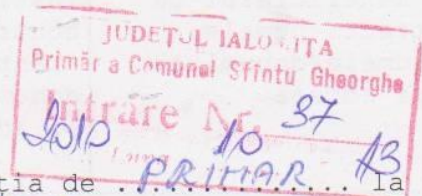 JUDEŢUL IALOMIŢA
Primăria Comunei Sfîntu Gheorghe
Intrare Nr. 37
2010 10 13
ţia de ....PRIMAR.... la